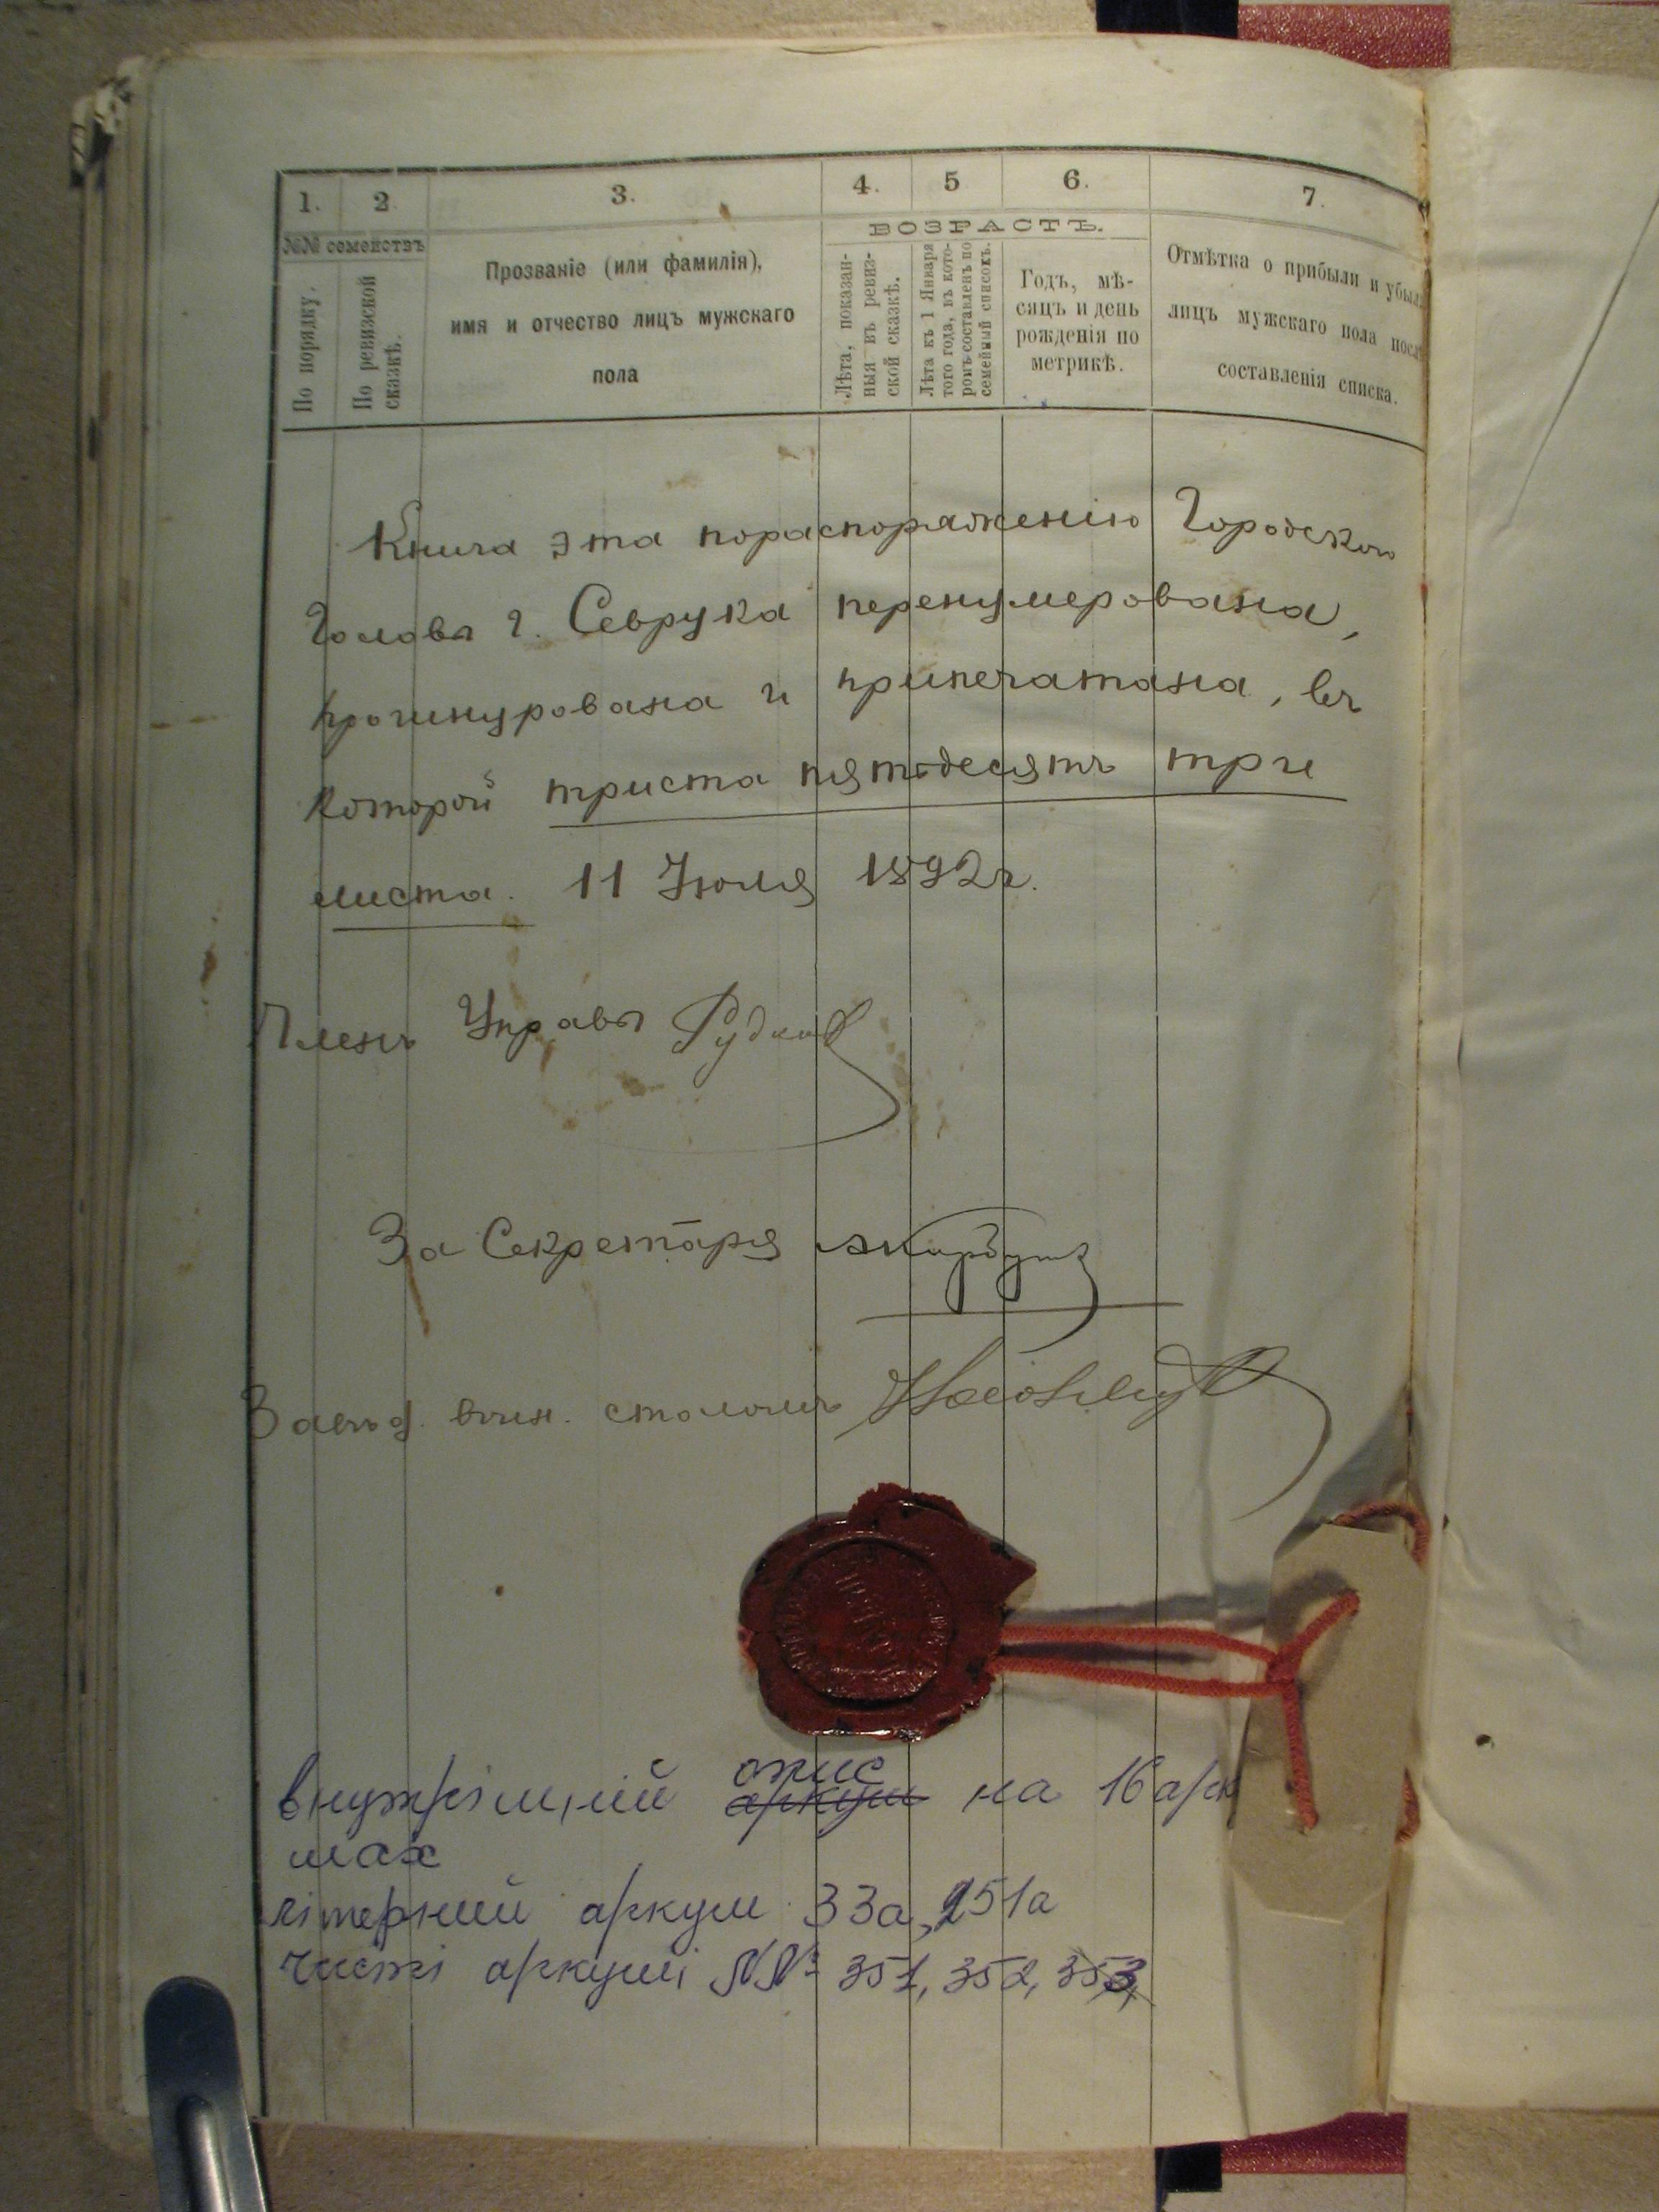 1. 2 3. 4. 5 6. 7.
№№ семействъ
ВОЗРАСТЪ.
По порядку.
По ревизской
сказкѣ.
Прозваніе (или фамилія),
имя и отчество лицъ мужскаго
пола
Лѣта, показан-
ныя въ ревиз-
ской сказкѣ.
Лѣта къ 1 Января
того года, въ кото-
ромъ составленъ по
семейный списокъ.
Годъ, мѣ-
сяцъ и день
рожденія по
метрикѣ.
Отмѣтка о прибыли и убыли
лицъ мужскаго пола послѣ
составленія списка.
Книга эта пораспоряженію Городского
Головы г. Севрука перенумерована,
прошнурована и припечатана, въ
которой триста пятьдесятъ три
листа. 11 Іюля 1892 г.
Членъ Управы
За Секретаря
Завѣд. воин. столомъ
внутрішній опис
аркуш на 16 арк
шах
літерний аркуш 33а, 251а
чисті аркуші №№ 351, 352, 353,